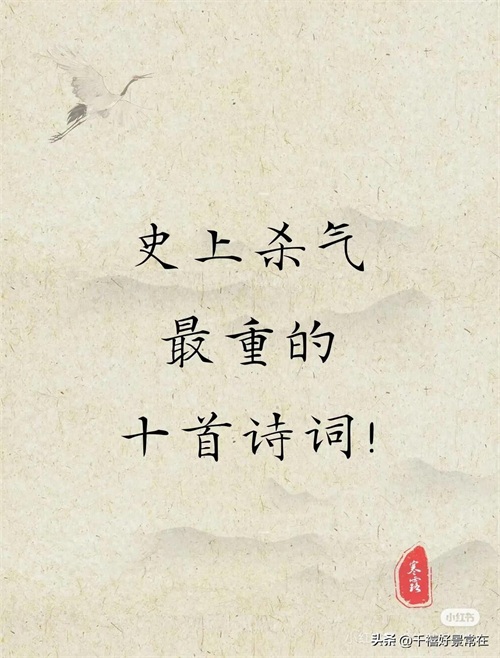 史上杀气
最重的
十首诗词！
寒露
小红书
头条 @千禧好景常在